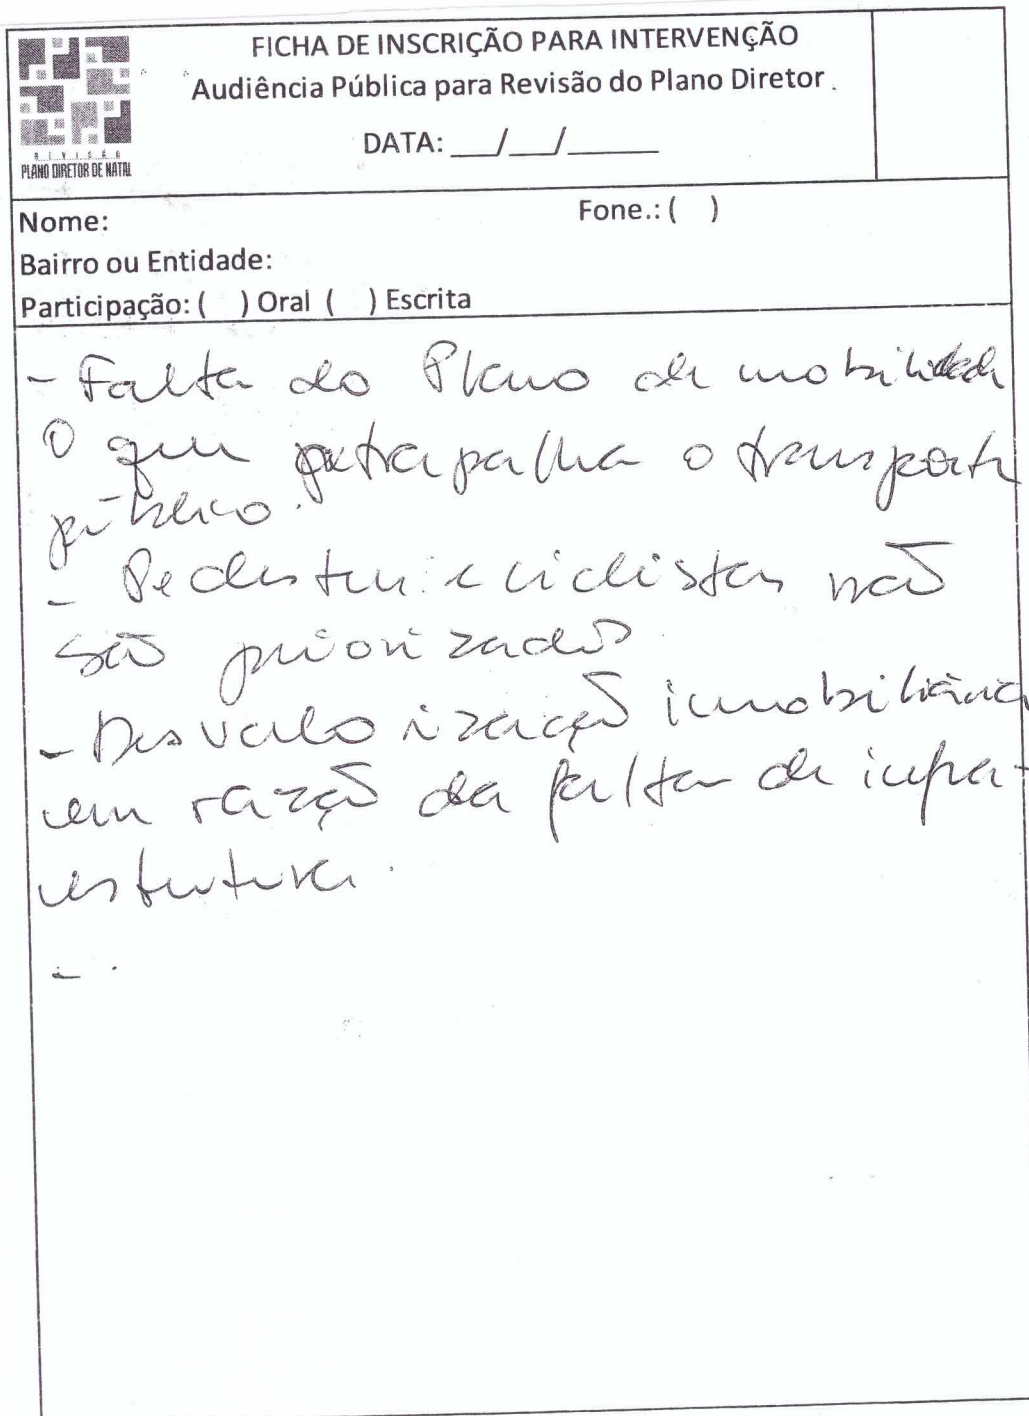 FICHA DE INSCRIÇÃO PARA INTERVENÇÃO
Audiência Pública para Revisão do Plano Diretor
DATA: ___/___/______
REVISÃO
PLANO DIRETOR DE NATAL
Nome: Fone.: ( )
Bairro ou Entidade:
Participação: ( ) Oral ( ) Escrita
- Falta do Plano de mobilidade
O que atrapalha o transporte
público.
- Pedestres e ciclistas não
são priorizados
- Desvalorização imobiliária
em razão da falta de infra-
estrutura.
- .